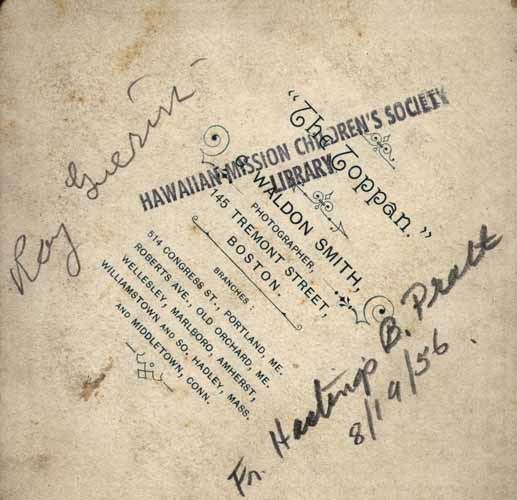 Roy Guerin
HAWAIIAN MISSION CHILDREN'S SOCIETY
LIBRARY
"The Toppan."
WALDON SMITH,
PHOTOGRAPHER,
145 TREMONT STREET,
BOSTON.
BRANCHES:
514 CONGRESS ST., PORTLAND, ME.
ROBERTS AVE., OLD ORCHARD, ME.
WELLESLEY, MARLBORO, AMHERST,
WILLIAMSTOWN AND SO. HADLEY, MASS.
AND MIDDLETOWN, CONN.
Fr. Hastings B. Pratt
8/19/56